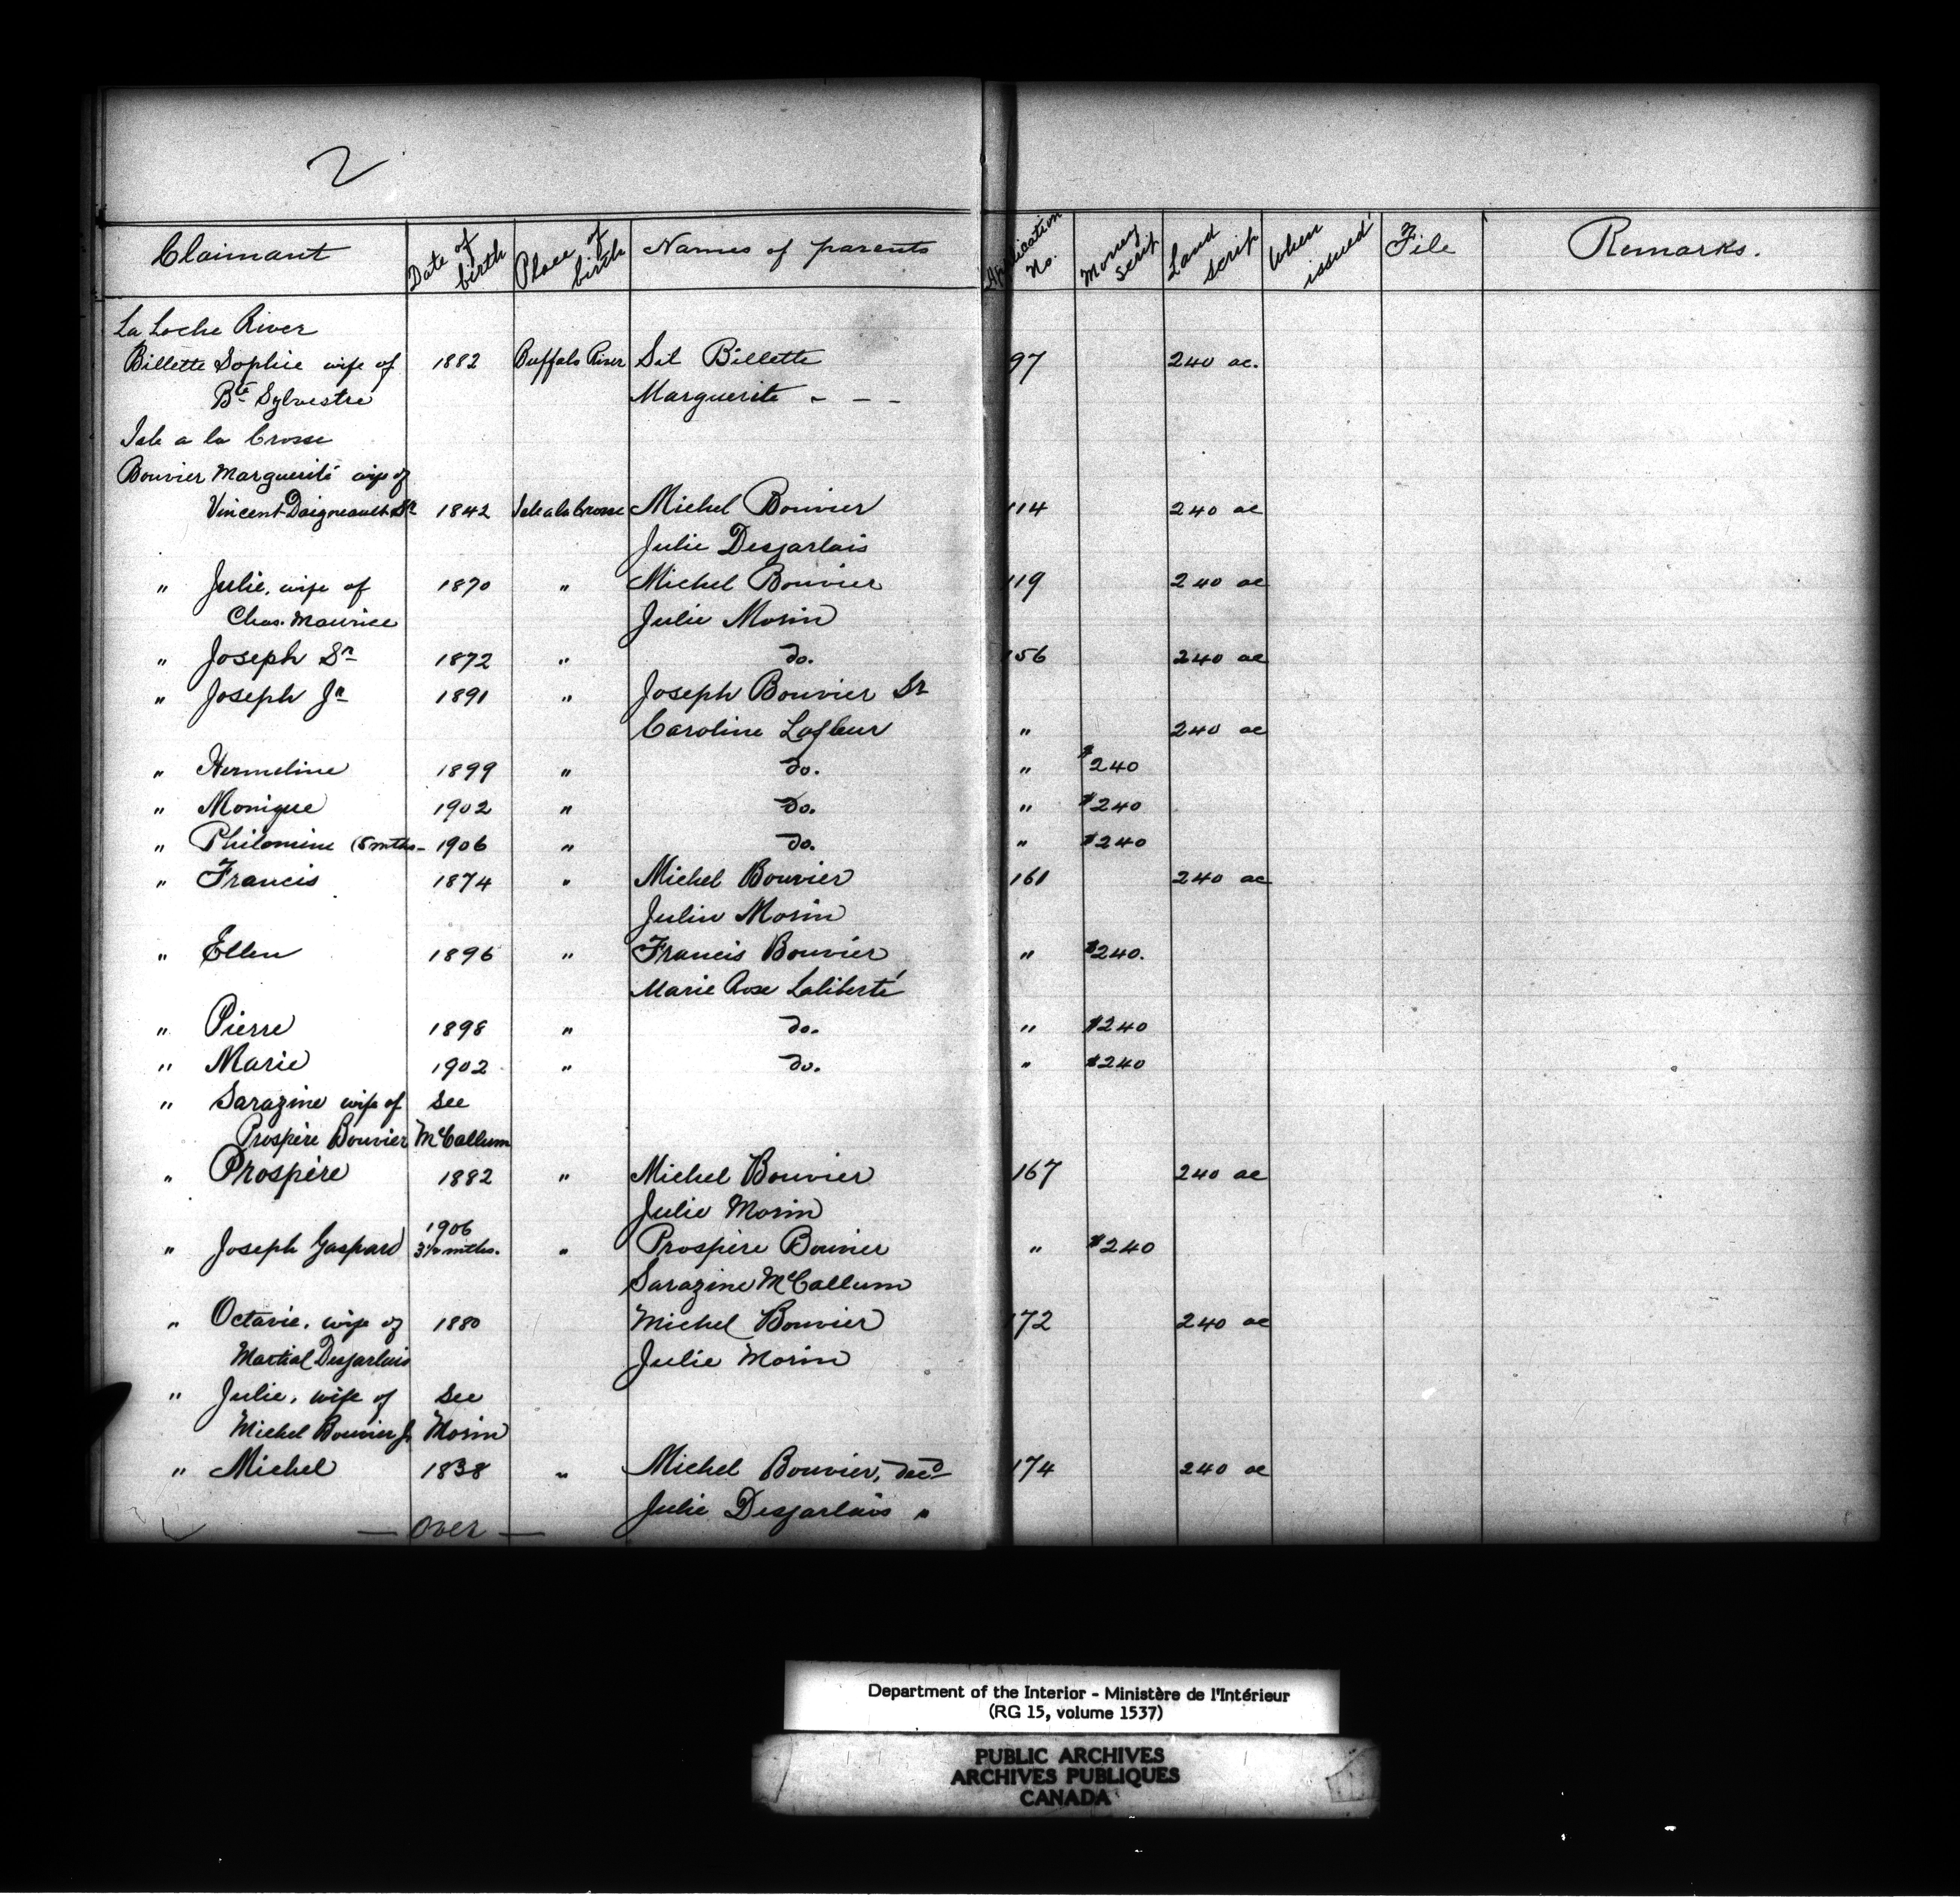 2
Claimant Date of birth Place of birth Names of parents Application No. Money scrip Land scrip When issued File Remarks.
La Loche River
Billette Sophie wife of 1882 Buffalo River Sil Billette 97 240 ac.
Bte Sylvestre Marguerite - - -
Isle a la Crosse
Bouvier Marguerite wife of
Vincent Daigneault Sr 1842 Isle a la Crosse Michel Bouvier 114 240 ac
Julie Desjarlais
" Julie, wife of 1870 " Michel Bouvier 119 240 ac
Chas. Maurice Julie Morin
" Joseph Sr 1872 " do. 156 240 ac
" Joseph Jr 1891 " Joseph Bouvier Sr
Caroline Lafleur " 240 ac
" Hermeline 1899 " do. " $240
" Monique 1902 " do. " $240
" Philomine (8 mths - 1906 " do. " $240
" Francis 1874 " Michel Bouvier 161 240 ac
Julie Morin
" Ellen 1896 " Francis Bouvier " $240.
Marie Rose Laliberté
" Pierre 1898 " do. " $240
" Marie 1902 " do. " $240
" Sarazine wife of see
Prospère Bouvier McCallum
" Prospère 1882 " Michel Bouvier 167 240 ac
Julie Morin
1906
" Joseph Gaspard 3½ mths. " Prospère Bouvier " $240
Sarazine McCallum
" Octavie, wife of 1880 Michel Bouvier 172 240 ac
Martial Desjarlais Julie Morin
" Julie, wife of see
Michel Bouvier Jr Morin
" Michel 1838 " Michel Bouvier, decd 174 240 ac
Julie Desjarlais "
— Over —
Department of the Interior - Ministère de l'Intérieur
(RG 15, volume 1537)
PUBLIC ARCHIVES
ARCHIVES PUBLIQUES
CANADA